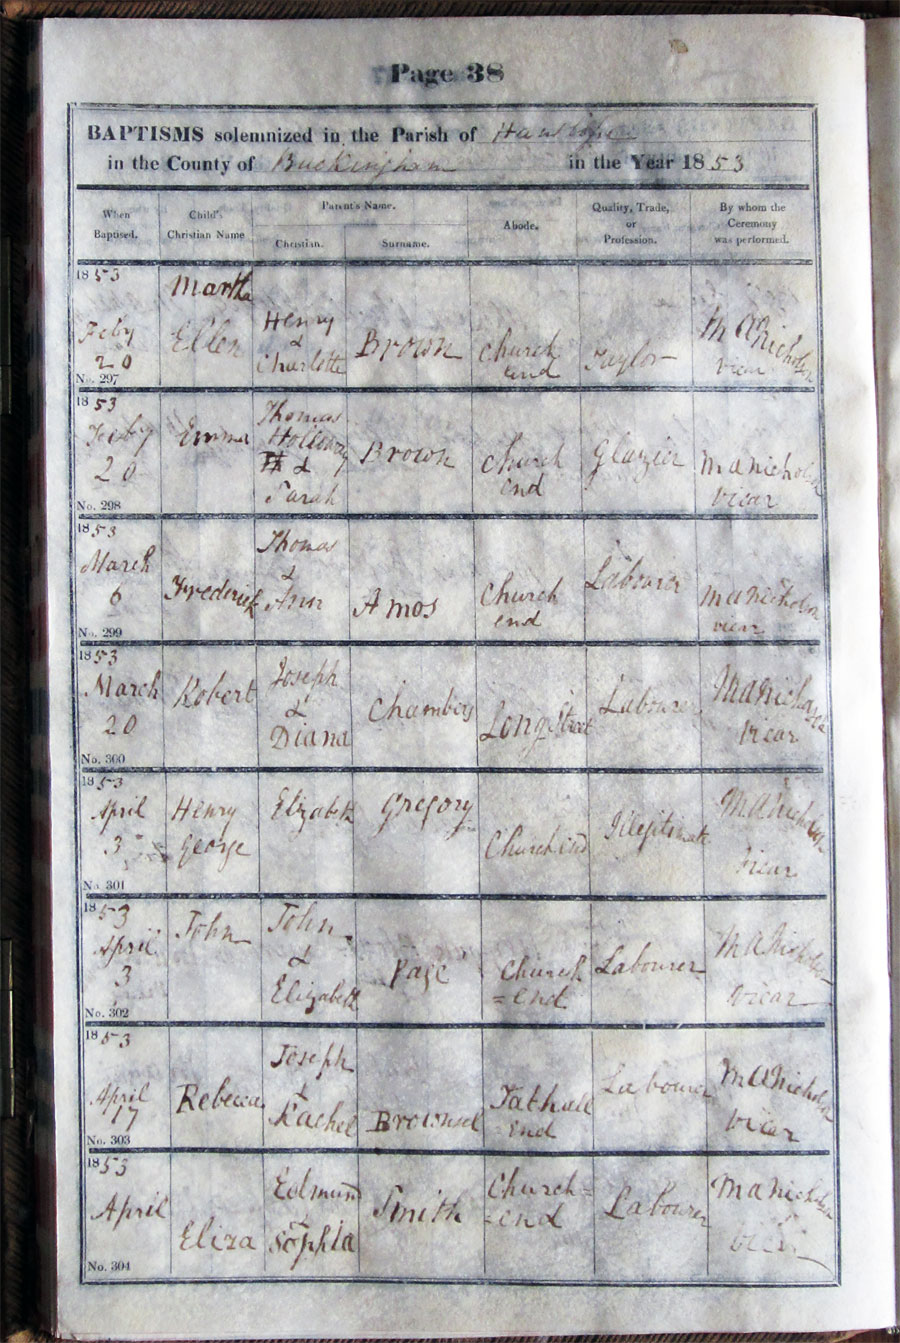 Page 38
BAPTISMS solemnized in the Parish of Hanslope
in the County of Buckingham in the Year 1853
When Baptised.
Child's Christian Name
Parent's Name.
Christian.
Surname.
Abode.
Quality, Trade, or Profession.
By whom the Ceremony was performed.
1853
Feby
20
No. 297
Martha
Ellen
Henry
&
Charlotte
Brown
Church
end
Taylor
M A Nicholson
vicar
1853
Feby
20
No. 298
Emma
Thomas
Holloway
&
Sarah
Brown
Church
end
Glazier
M A Nicholson
vicar
1853
March
6
No. 299
Frederick
Thomas
&
Ann
Amos
Church
end
Labourer
M A Nicholson
vicar
1853
March
20
No. 300
Robert
Joseph
&
Diana
Chambers
Long Street
Labourer
M A Nicholson
vicar
1853
April
3
No. 301
Henry
George
Elizabeth
Gregory
Church end
Illegitimate
M A Nicholson
vicar
1853
April
3
No. 302
John
John
&
Elizabeth
Page
Church
=end
Labourer
M A Nicholson
vicar
1853
April
17
No. 303
Rebecca
Joseph
&
Rachel
Brownsel
Tathall
end
Labourer
M A Nicholson
vicar
1853
April
No. 304
Eliza
Edmund
&
Sophia
Smith
Church=
=end
Labourer
M A Nicholson
vicar